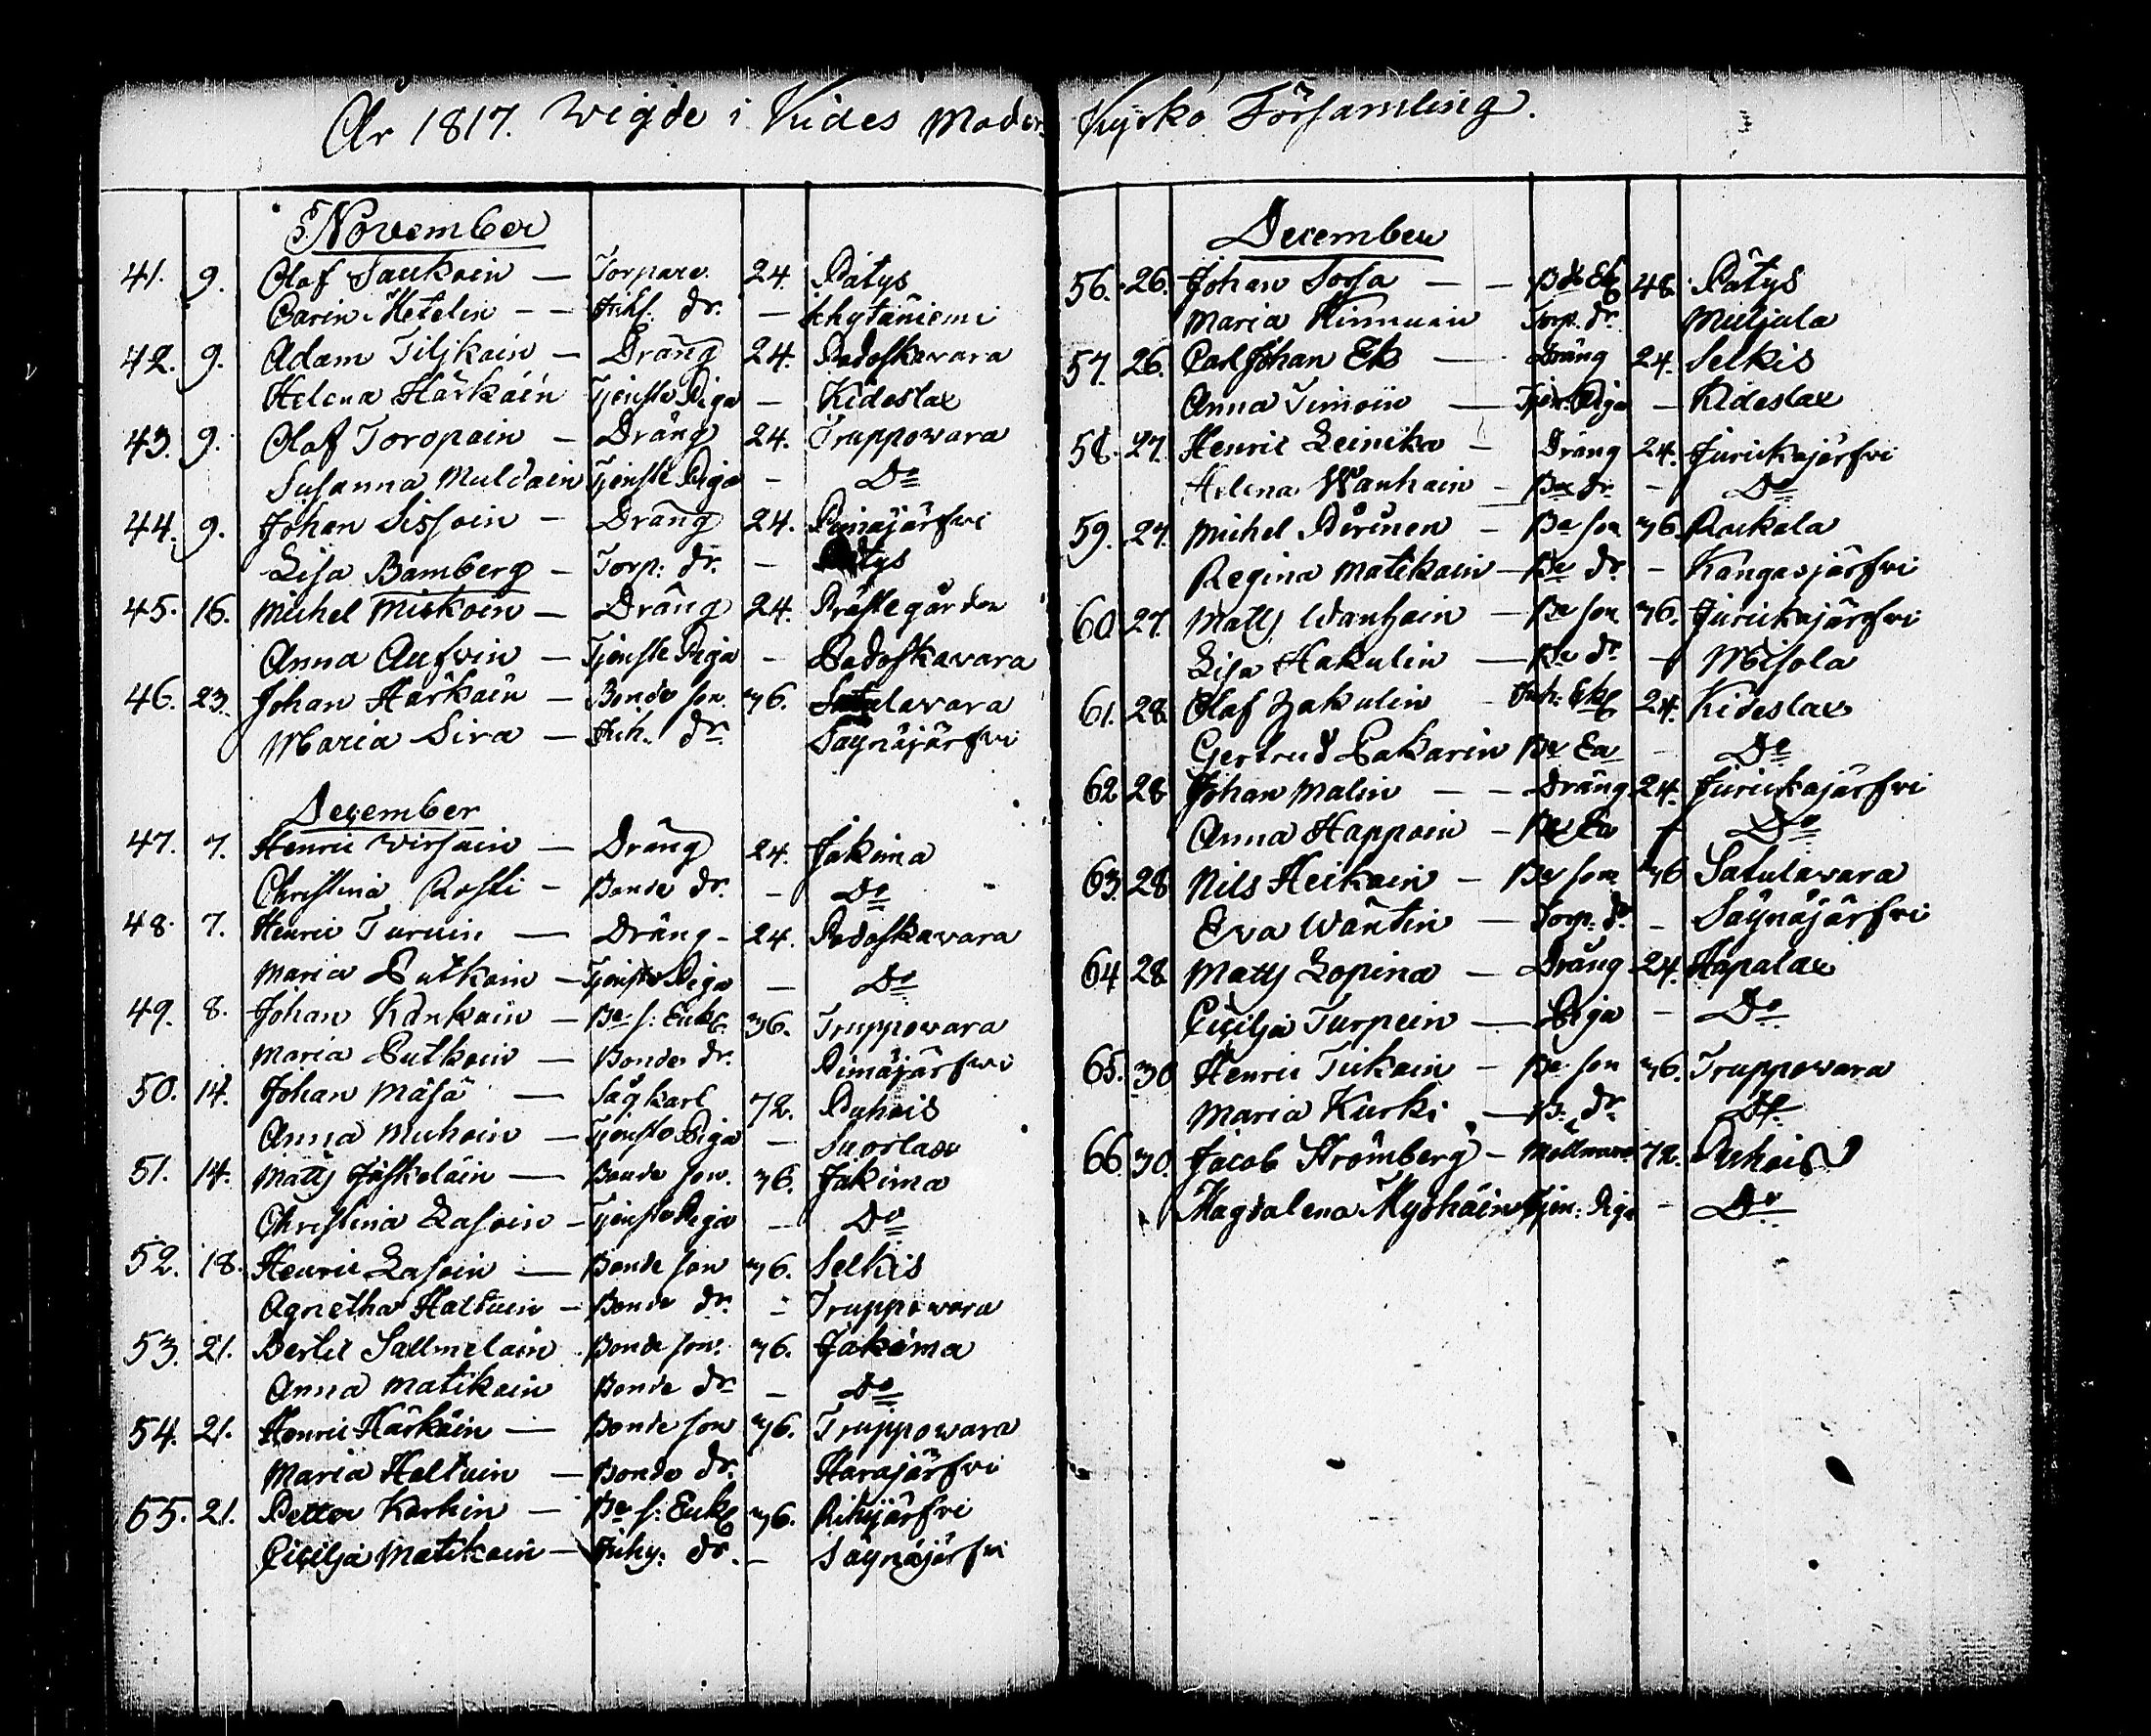 År 1817. Wigde i Kides Moder Kyrko Församling.
November
41. 9. Olof Saukoin — Torpare 24. Pätys
Carin Hetelin — Inh. dr. — Khytäniemi
42. 9. Adam Tiljkain — Dräng 24. Podoskavara
Helena Härkäin Tjenste Piga — Kideslax
43. 9. Olof Toropain — Dräng 24. Truppowara
Susanna Muldain Tjenste Piga — Do
44. 9. Johan Sissoin — Dräng 24. Pimäjärfvi
Lisa Bamberg — Torp: dr. — Pätys
45. 16. Michel Miskoin — Dräng 24. Prästegården
Anna Aufvin — Tjenste Piga — Podoskavara
46. 23. Johan Härkäin — Bonde son 36. Satulavara
Maria Sira — Inh. dr. Säynäjärfvi
December
47. 7. Henric Wirsain — Dräng 24. Jakima
Christina Rosti — Bonde dr. — Do
48. 7. Henric Turuin — Dräng — 24. Podoskavara
Maria Putkoin — Tjenste Piga — Do
49. 8. Johan Känkäin — Be s: Enkl 36. Truppowara
Maria Putkoin — Bonde dr. Pimäjärfvi
50. 14. Johan Mäsä — Sågkarl 72. Puhois
Anna Muhoin — Tjenste Piga — Suorlax
51. 14. Matts Jäskeläin — Bonde son. 36. Jakima
Christina Lasoin — Tjenste Piga — Do
52. 18. Henric Lasoin — Bonde son 36. Selkis
Agnetha Hattuin — Bonde dr. — Truppowara
53. 21. Bertil Sallmelain Bonde son. 36. Jakima
Anna Matikain Bonde dr — Do
54. 21. Henric Härkäin — Bonde son 36. Truppowara
Maria Haltuin — Bonde dr. Harajärfvi
55. 21. Petter Karhin — Be s: Enkl 36. Rihijärfvi
Cicilja Matikain — Inhy: dr. — Säynäjärfvi
December
56. 26. Johan Sosa — — 48. Pätys
Maria Kinnuin Torp. dr. Muljula
57. 26. Carl Johan Ek — Dräng 24. Selkis
Anna Timoin — Tjen. Piga — Kideslax
58. 27. Henric Leinika — Dräng 24. Jurickajärfvi
Helena Wanhain — Be dr — Do
59. 27. Michel Pirinen — Be son 36. Packala
Regina Matikain — Be dr. — Kangasjärfvi
60. 27. Matts Wanhain — Be son 36. Jurickajärfvi
Lisa Hakulin — Be dr. — Misola
61. 28. Olof Hakulin — Inh: Ekl 24. Kideslax
Gertrud Pakarin Be Ea — Do
62. 28. Johan Malin — — Dräng 24. Jurickajärfvi
Anna Happoin — Be Ea — Do
63. 28. Nils Heikain — Be son 36 Satulavara
Eva Wäntin — Torp: dr. — Säynäjärfvi
64. 28. Matts Lopina — Dräng 24. Hapalax
Cicilja Turpein — Piga — Do
65. 30 Henric Tiikain — Be son 36. Truppowara
Maria Kurki — B. dr. Do
66. 30. Jacob Strömberg — 72. Puhois
Magdalena Myöhäin Tjen: Piga — Do